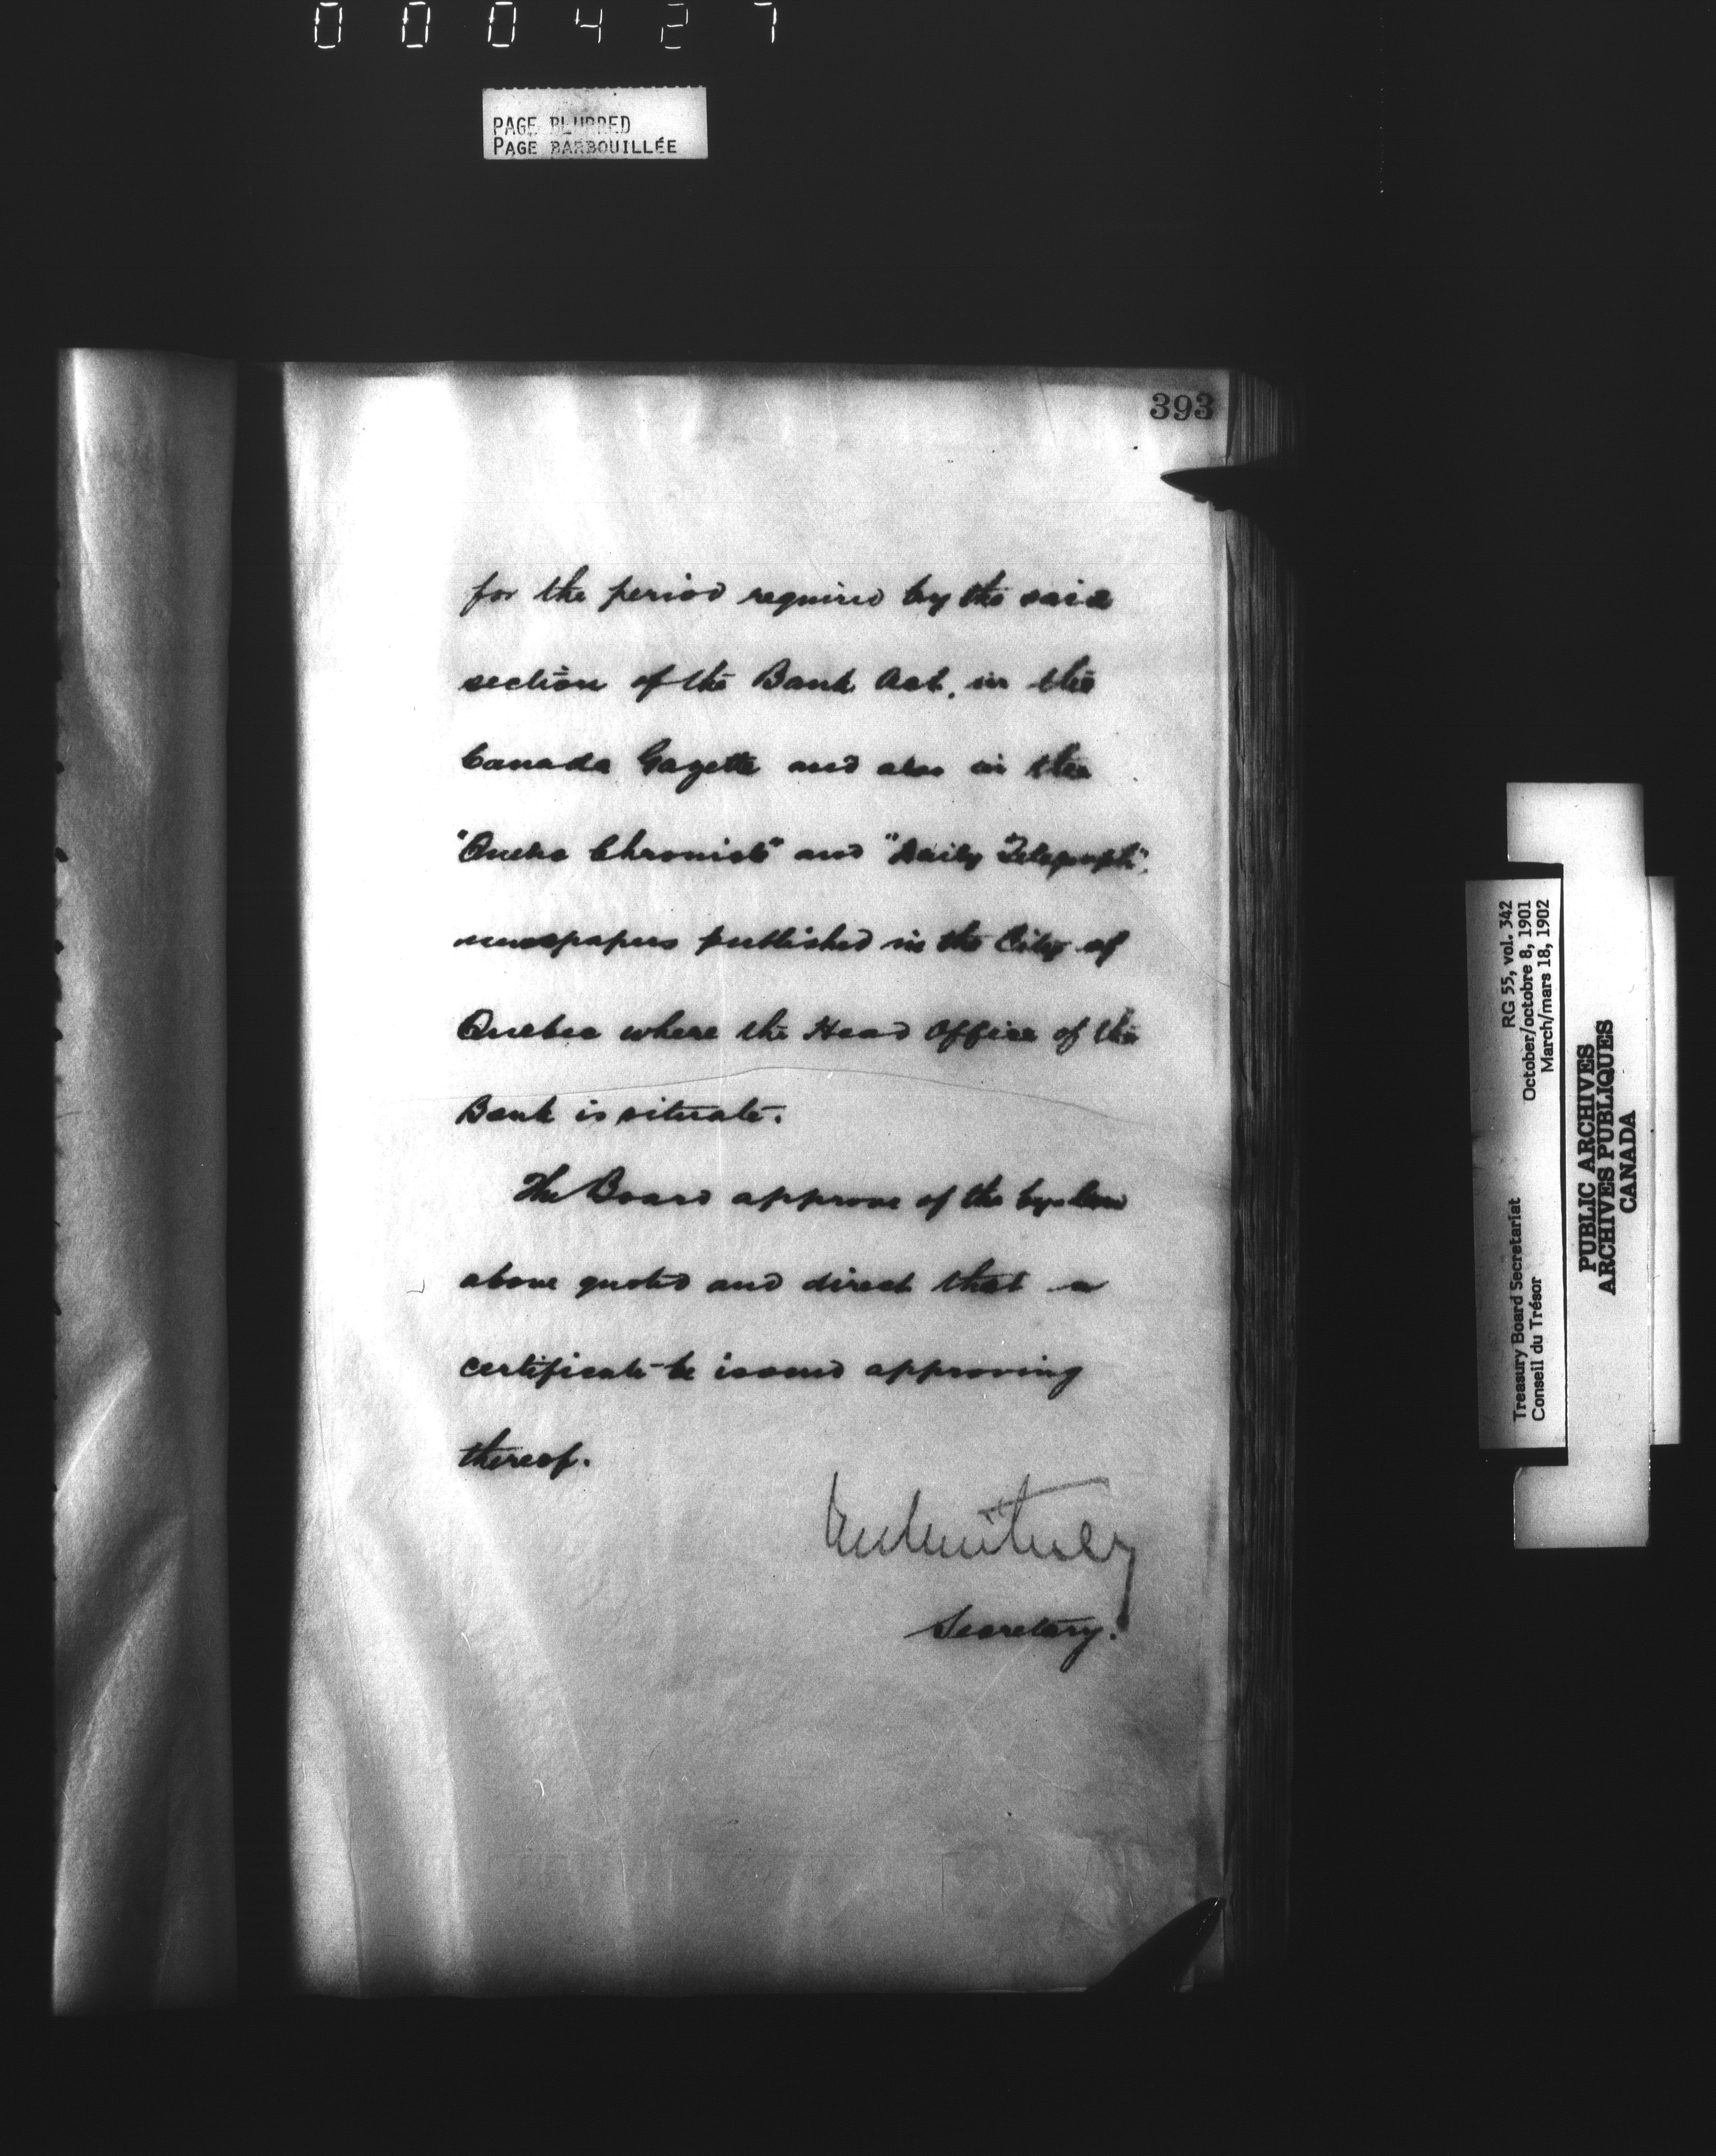 000427
PAGE BLURRED
PAGE BARBOUILLÉE
393
for the period required by the said
section of the Bank Act, in the
Canada Gazette and also in the
"Quebec Chronicle" and "Daily Telegraph",
newspapers published in the City of
Quebec where the Head Office of the
Bank is situate.
The Board approve of the bye-law
above quoted and direct that a
certificate be issued approving
thereof.
Secretary.
Treasury Board Secretariat RG 55, vol. 342
Conseil du Trésor October/octobre 8, 1901
March/mars 18, 1902
PUBLIC ARCHIVES
ARCHIVES PUBLIQUES
CANADA